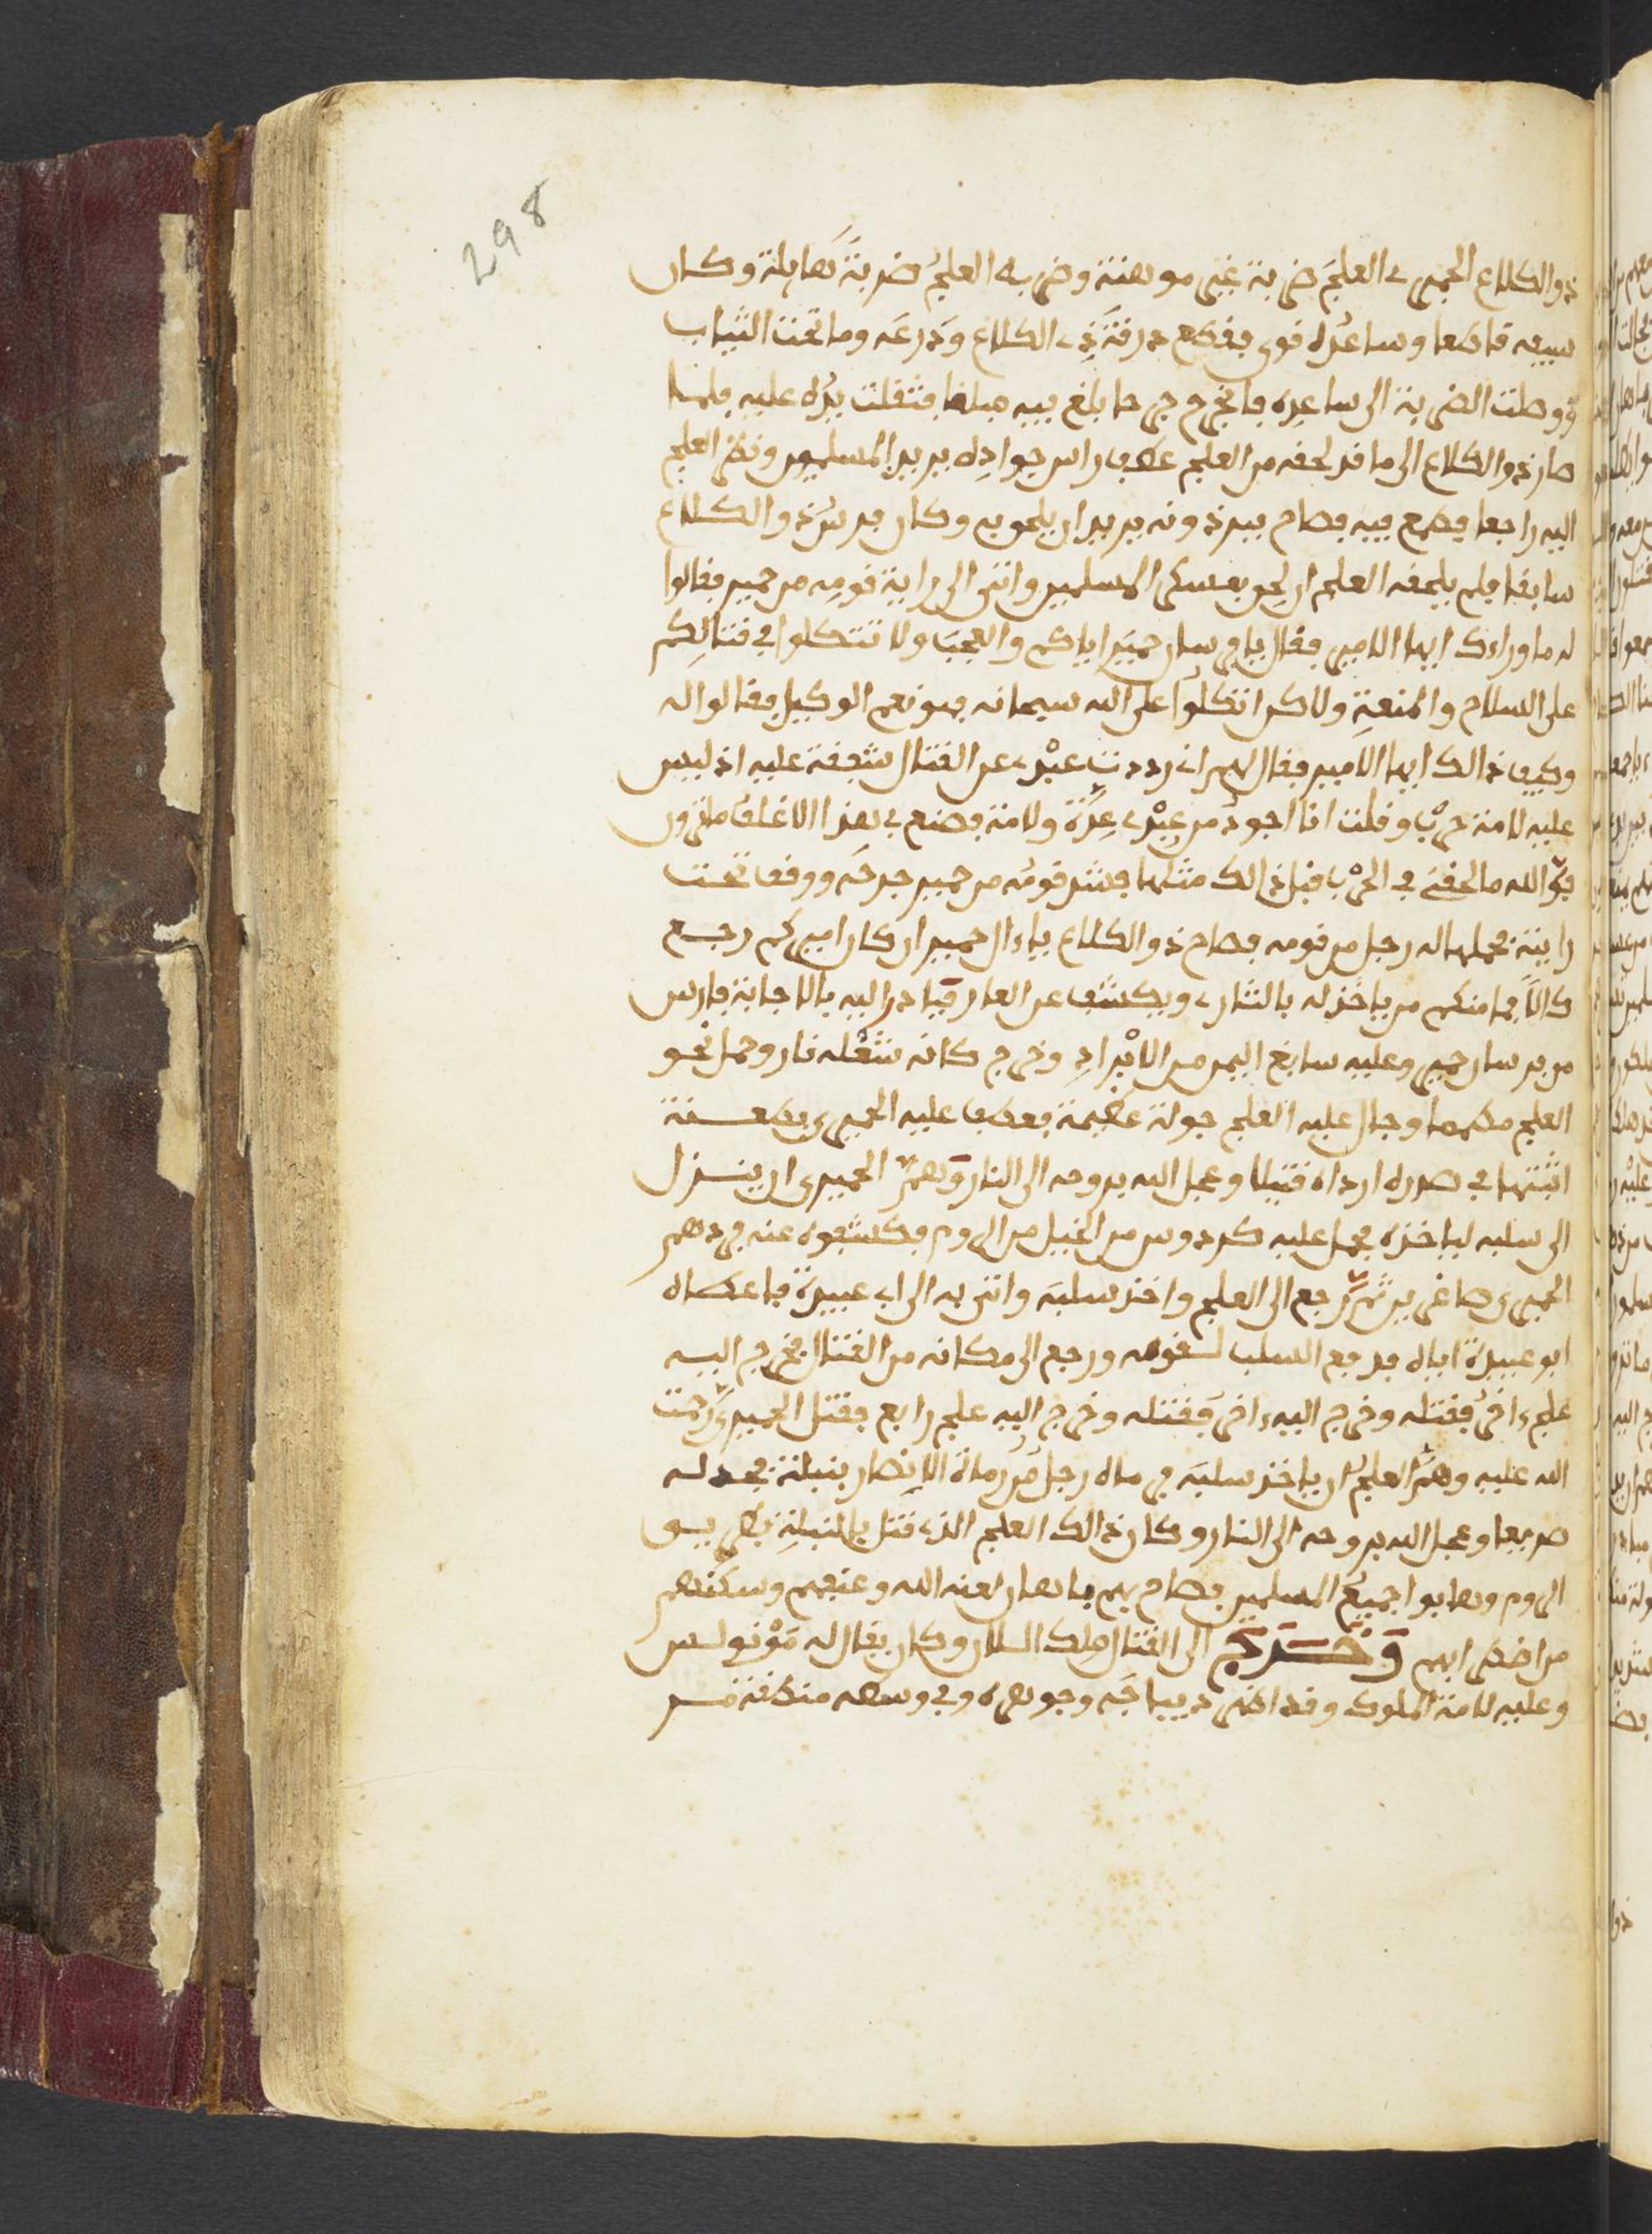 298
ذو الكلاع الحميري العلج ضربة غير موهنة وضربه العلج ضربة هايلة وكان
سيفه قاطعا وساعده قوي فقطع درقة ذي الكلاع ودرعه وما تحت الثياب
ووصلت الضربة الى ساعده فانجرح جرحا بلغ فيه مبلغا فثقلت يده عليه فلما
صار ذو الكلاع الى ما قد لحقه من العلج عطف راس جواده يريد المسلمين ونظر العلج
اليه راجعا فطمع فيه فصاح ببرذونه يريد ان يلحق به وكان فرس ذو الكلاع
سابقا فلم يلحقه العلج ان لحق بعسكر المسلمين واتى الى راية قومه من حمير فقالوا
له ما وراءك ايها الامير فقال يا فرسان حمير اياكم والعجب ولا تتكلوا في قتالكم
على السلاح والمنعة ولاكن اتكلوا على الله سبحانه فهو نعم الوكيل فقالوا له
وكيف ذالك ايها الامير فقال لهم اني رددت عبدي عن القتال شفقة عليه اذ ليس
عليه لامة حرب وقلت انا اجود من عبدي عدة ولامة فصنع بي هذا الاغلف ما ترون
فوالله ما لحقني في الحرب قبل ذالك مثلها فشد قومه من حمير جرحه ووقف تحت
رايته فحملها له رجل من قومه فصاح ذو الكلاع يا ءال حمير ان كان اميركم رجع
كالا فما منكم من ياخذ له بالثار ويكشف عن العار فبادر اليه بالاجابة فارس
من فرسان حمير وعليه سابغ اليمن من الابراد وخرج كانه شعلة نار وحمل نحو
العلج مصمما وجال عليه العلج جولة عظيمة فعطف عليه الحميري بطعنة
اثبتها في صدره ارداه قتيلا وعجل الله بروحه الى النار وهم الحميري ان ينزل
الى سلبه لياخذه فحمل عليه كردوس من الخيل من الروم فكشفوه عنه فردهم
الحميري صاغرين ثم رجع الى العلج واخذ سلبه واتى به الى ابي عبيدة فاعطاه
ابو عبيدة اياه فدفع السلب لقومه ورجع الى مكانه من القتال فخرج اليه
علج ءاخر فقتله وخرج اليه ءاخر فقتله وخرج اليه علج رابع فقتل الحميري رحمت
الله عليه وهم العلج ان ياخذ سلبه فرماه رجل من رماة الانصار بنبلة فجدله
صريعا وعجل الله بروحه الى النار وكان ذالك العلج الذي قتل بالنبلة بطريق
الروم وهابوا جميع المسلمين فصاح بهم باهان لعنه الله وعنفهم وسكنهم
من اضطرابهم وخرج الى القتال ملك اللان وكان يقال له مونولس
وعليه لامة الملوك وقد اظهر ديباجه وجوهره وفي وسطه منطقة من